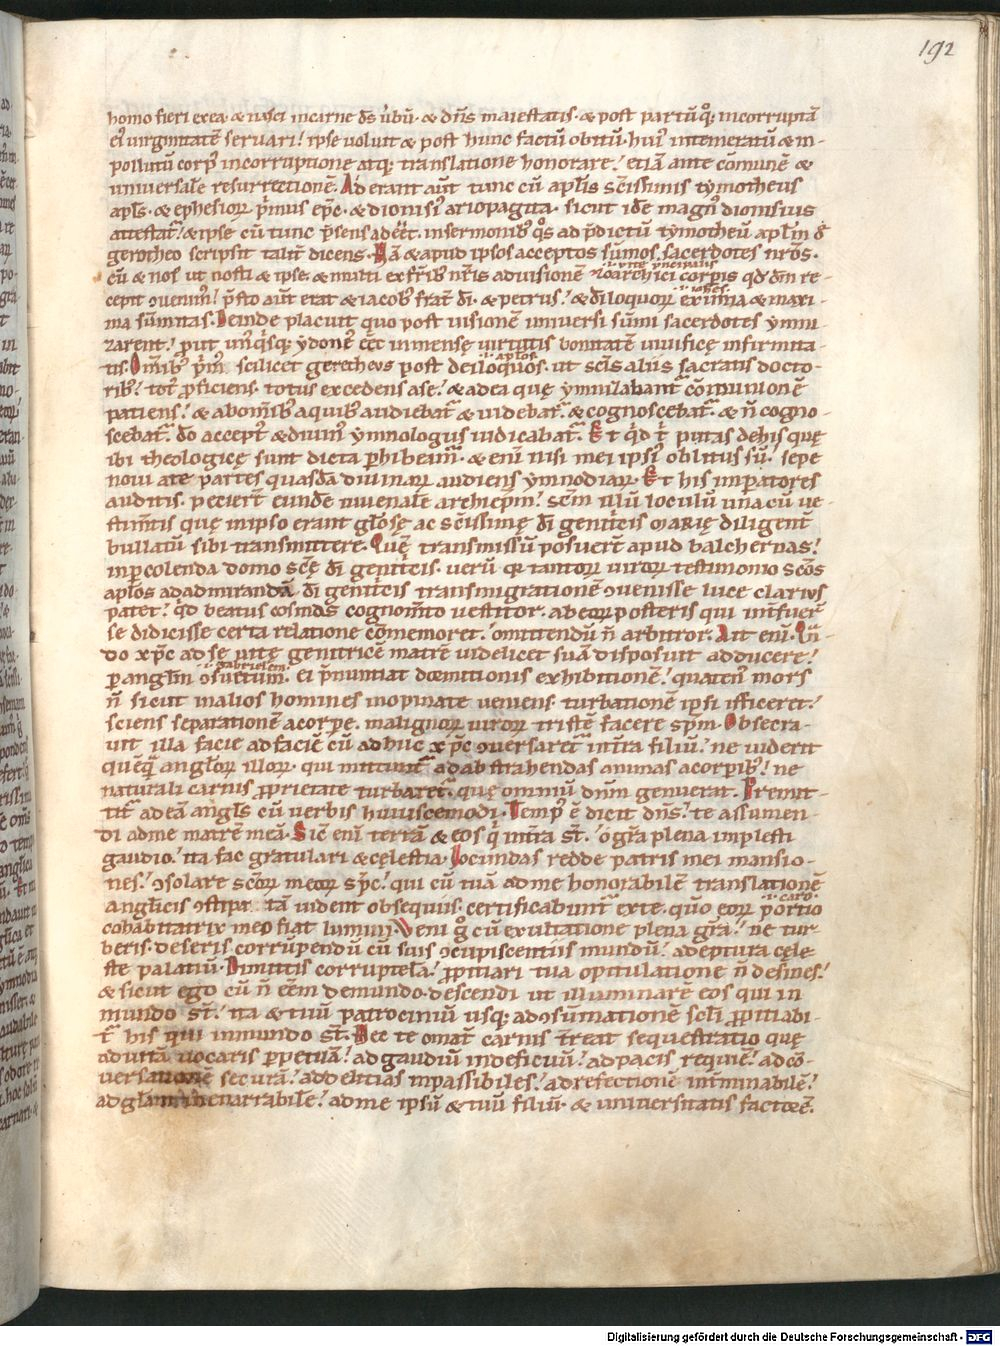 192
homo fieri ex ea. & nasci incarne d̄s ūbū. & dn̄s maiestatis. & post partū q̨. incorruptā
ei᾽ virginitatē servari! ipse voluit & post hunc factū obitū. hui᾽ intemeratū & in-
pollutū corp᾽ incorruptione atq; translatione honorare! etiā ante comunē &
universalē resurrectionē. Ad erant aūt tunc cū apl̄is sc̄issimis tymotheus
apl̄s. & ephesiorꝝ p̄mus ep̄c. & dionisi᾽ ariopagita. sicut idē magn᾽ dionisius
attestat᾽! & ipse cū tunc p̄sens adeēt. insermonib᾽ q̄s ad p̄dictū tymotheū apl̄m d̄
gerotheo scripsit talit̄ dicens. Nā & apud ipsos acceptos sūmos sacerdotes nr̄os.
cū & nos ut nosti & ipse. & multi ex fr̄ib᾽ nr̄is advisionē zoarchici corpis qd᾽ dm̄ re-
i. vite principalis
cepit ꝯvenim᾽! p̄sto aūt erat & iacob᾽ frat̄ dī. & petrus! & dīloquorꝝ eximia & maxi-
ma sūmitas. Deinde placuit quo post visionē universi sūmi sacerdotes ymni
zarent! put un᾽q᾽sq; ydone᾽ eēt inmensę virtutis bonitatē vivificę infirmita-
tis. Om̄ib᾽ p̄m᾽. scilicet gerotheus post deiloquos. ut sc̄is aliis sacratis docto-
i. aplos
rib᾽! tot᾽ proficiens. totus excedens a se! & ad ea quę ymnilabant̄ cōmunionē
patiens! & abom̄ib᾽ aquib᾽ audiebat᾽ & videbat᾽. & cognoscebat᾽. & n̄ cogno-
scebat᾽. do accept᾽ & divin᾽ ymnologus iudicabat᾽. Et q̄d t᾽ putas dehis quę
ibi theologicę sunt dicta phibeam᾽. & enī nisi mei ipsi᾽ oblitus sū! sepe
novi a te partes quasdā divinarꝝ audiens ymnodiarꝝ. Et his imperatores
auditis. pecier̄t eundē iuvenalē archiep̄m! sc̄m illū loculū una cū ve-
stim̄tis quę inipso erant gl̄osę ac sc̄issimę dī genitcis marię diligent̄
bullatū sibi transmittere. Quē transmissū posuer̄t apud balchernas!
inpcolenda domo sc̄ę dī genit̄cis. verū q̨ tantorꝝ virorꝝ testimonio sc̄os
apl̄os adadmirandā dī genit̄cis transmigrationē ꝯvenisse luce clarius
patet! qd᾽ beatus cosmas cognom̄to vestitor. ab eorꝝ posteris qui int̄fuer̄
se didicisse certa relatione cōmemoret! omittendū n̄ arbitror. Ait enī. Qn̄
do xp̄c ad se vitę genitricē matrē videlicet suā disposuit adducere!
i. gabrielem
p angl̄m ꝯsuetum. ei p̄nuntiat dormitionis exhibitionē! quaten᾽ mors
n̄ sicut inalios homines inopinate veniens. turbationē ipsi ifficeret!
sciens separationē acorpe. malignorꝝ virorꝝ tristē facere sp̄m. Obsecra-
vit illa facie adfaciē cū adhuc xp̄c ꝯversaret᾽ int̄ra filiū! ne viderit
quēq᾽ angl̄orꝝ illorꝝ. qui mittunt᾽ adabstrahendas animas acorpib᾽! ne
naturali carnis proprietate turbaret᾽. quę omniū dn̄m genuerat. Premit-
tit᾽ adeā angl̄s cū verbis huiuscemodi. Temp᾽ ē dicit dn̄s! te assumen-
di adme matrē meā. Sic enī terrā & eos q᾽ int̄ra st̄. o gr̄a plena implesti
gaudio! ita fac gratulari & cęlestia. Iocundas redde patris mei mansio-
nes! ꝯsolare sc̄orꝝ meorꝝ sp̄c! qui cū tuā adme honorabilē translationē
i. caro
angl̄icis ꝯstipatā vident obsequiis. certificabunt᾽ exte. quo eorꝝ portio
cohabitatrix meo fiat lumini. Veni g᾽ cū exultatione plena gr̄a! ne tur-
beris. deseris corrūpendū cū suis ꝯcupiscentiis mundū! adeptura cęle-
ste palatiū. Dimittis corruptelā! propitiari tua opitulatione n̄ desines!
& sicut ego cū n̄ eēm demundo. descendi ut illuminarē eos qui in
mundo st̄. ita & tuū patrociniū usq; adꝯsūmationē scl̄i propitiabi-
t᾽ his qui inmundo st̄. Nec te omat᾽ carnis t̄reat sequestratio quę
advitā vocaris ppetuā! adgaudiū indeficuū! adpacis requiē! adcō-
versationē securā! addelitias inpassibiles! adrefectionē int̄minabilē!
adgl̄am inenarrabilē! adme ipsū & tuū filiū. & universitatis factorē.
Digitalisierung gefördert durch die Deutsche Forschungsgemeinschaft - DFG